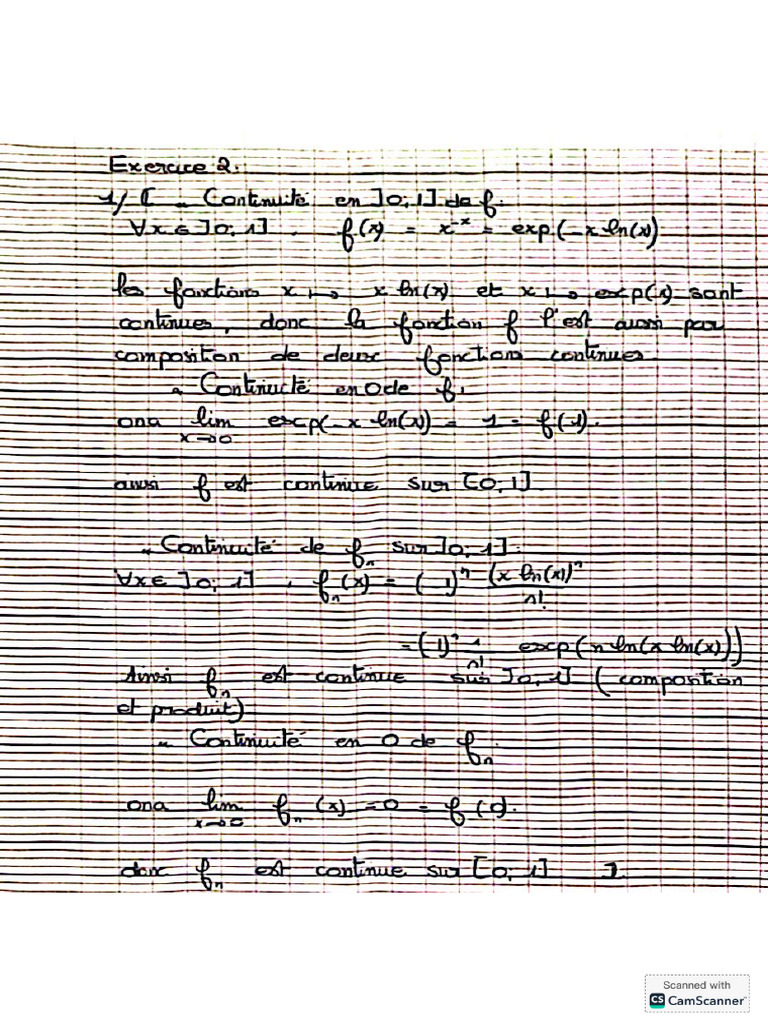 Exercice 2.
1/ [ - Continuité en ]0; 1] de f.
∀x ∈ ]0; 1] , f(x) = x^{-x} = exp(-x ln(x))
les fonctions x ↦ x ln(x) et x ↦ exp(x) sont
continues, donc la fonction f l'est aussi par
composition de deux fonctions continues
- Continuité en 0 de f.
ona lim_{x→0} exp(-x ln(x)) = 1 = f(1).
ainsi f est continue sur [0, 1]
- Continuité de f_n sur ]0; 1].
∀x ∈ ]0; 1] , f_n(x) = (-1)^n (x ln(x))^n / n!
= (-1)^n 1/n! exp(n ln(x ln(x)))
Ainsi f_n est continue sur ]0, 1] ( composition
et produit)
- Continuité en 0 de f_n.
ona lim_{x→0} f_n(x) = 0 =
donc f_n est continue sur [0; 1] ]
Scanned with
CS CamScanner